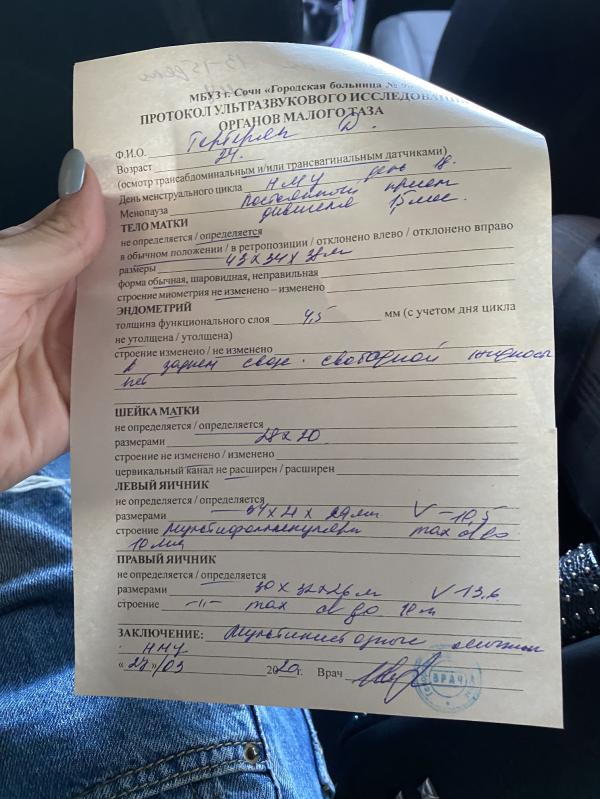 МБУЗ г. Сочи «Городская больница №
ПРОТОКОЛ УЛЬТРАЗВУКОВОГО ИССЛЕДОВАНИ
ОРГАНОВ МАЛОГО ТАЗА
Ф.И.О. Д.
Возраст 24.
(осмотр трансабдоминальным и/или трансвагинальным датчиками)
День менструального цикла НМЦ день 18.
Менопауза постоянный прием
15 мес.
ТЕЛО МАТКИ
не определяется / определяется
в обычном положении / в ретропозиции / отклонено влево / отклонено вправо
размеры 43 х 34 х 38 м
форма обычная, шаровидная, неправильная
строение миометрия не изменено – изменено
ЭНДОМЕТРИЙ
толщина функционального слоя 4,5 мм (с учетом дня цикла
не утолщена / утолщена)
строение изменено / не изменено
в заднем своде. свободной жидкости
нет
ШЕЙКА МАТКИ
не определяется / определяется
размерами 28 х 20
строение не изменено / изменено
цервикальный канал не расширен / расширен
ЛЕВЫЙ ЯИЧНИК
не определяется / определяется
размерами х 21 х V – 10,5
строение мультифолликулярн max d до
10 мм
ПРАВЫЙ ЯИЧНИК
не определяется / определяется
размерами 30 х 32 х 26 м V – 13.6
строение –//– max d до 10 м
ЗАКЛЮЧЕНИЕ: Мультикистозные яичники
НМЦ
« 27 » 03 2020г. Врач
ВРАЧ